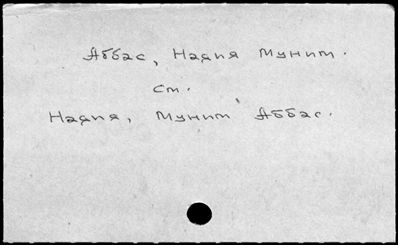 Аббас, Надия Муним.
см.
Надия, Муним Аббас.